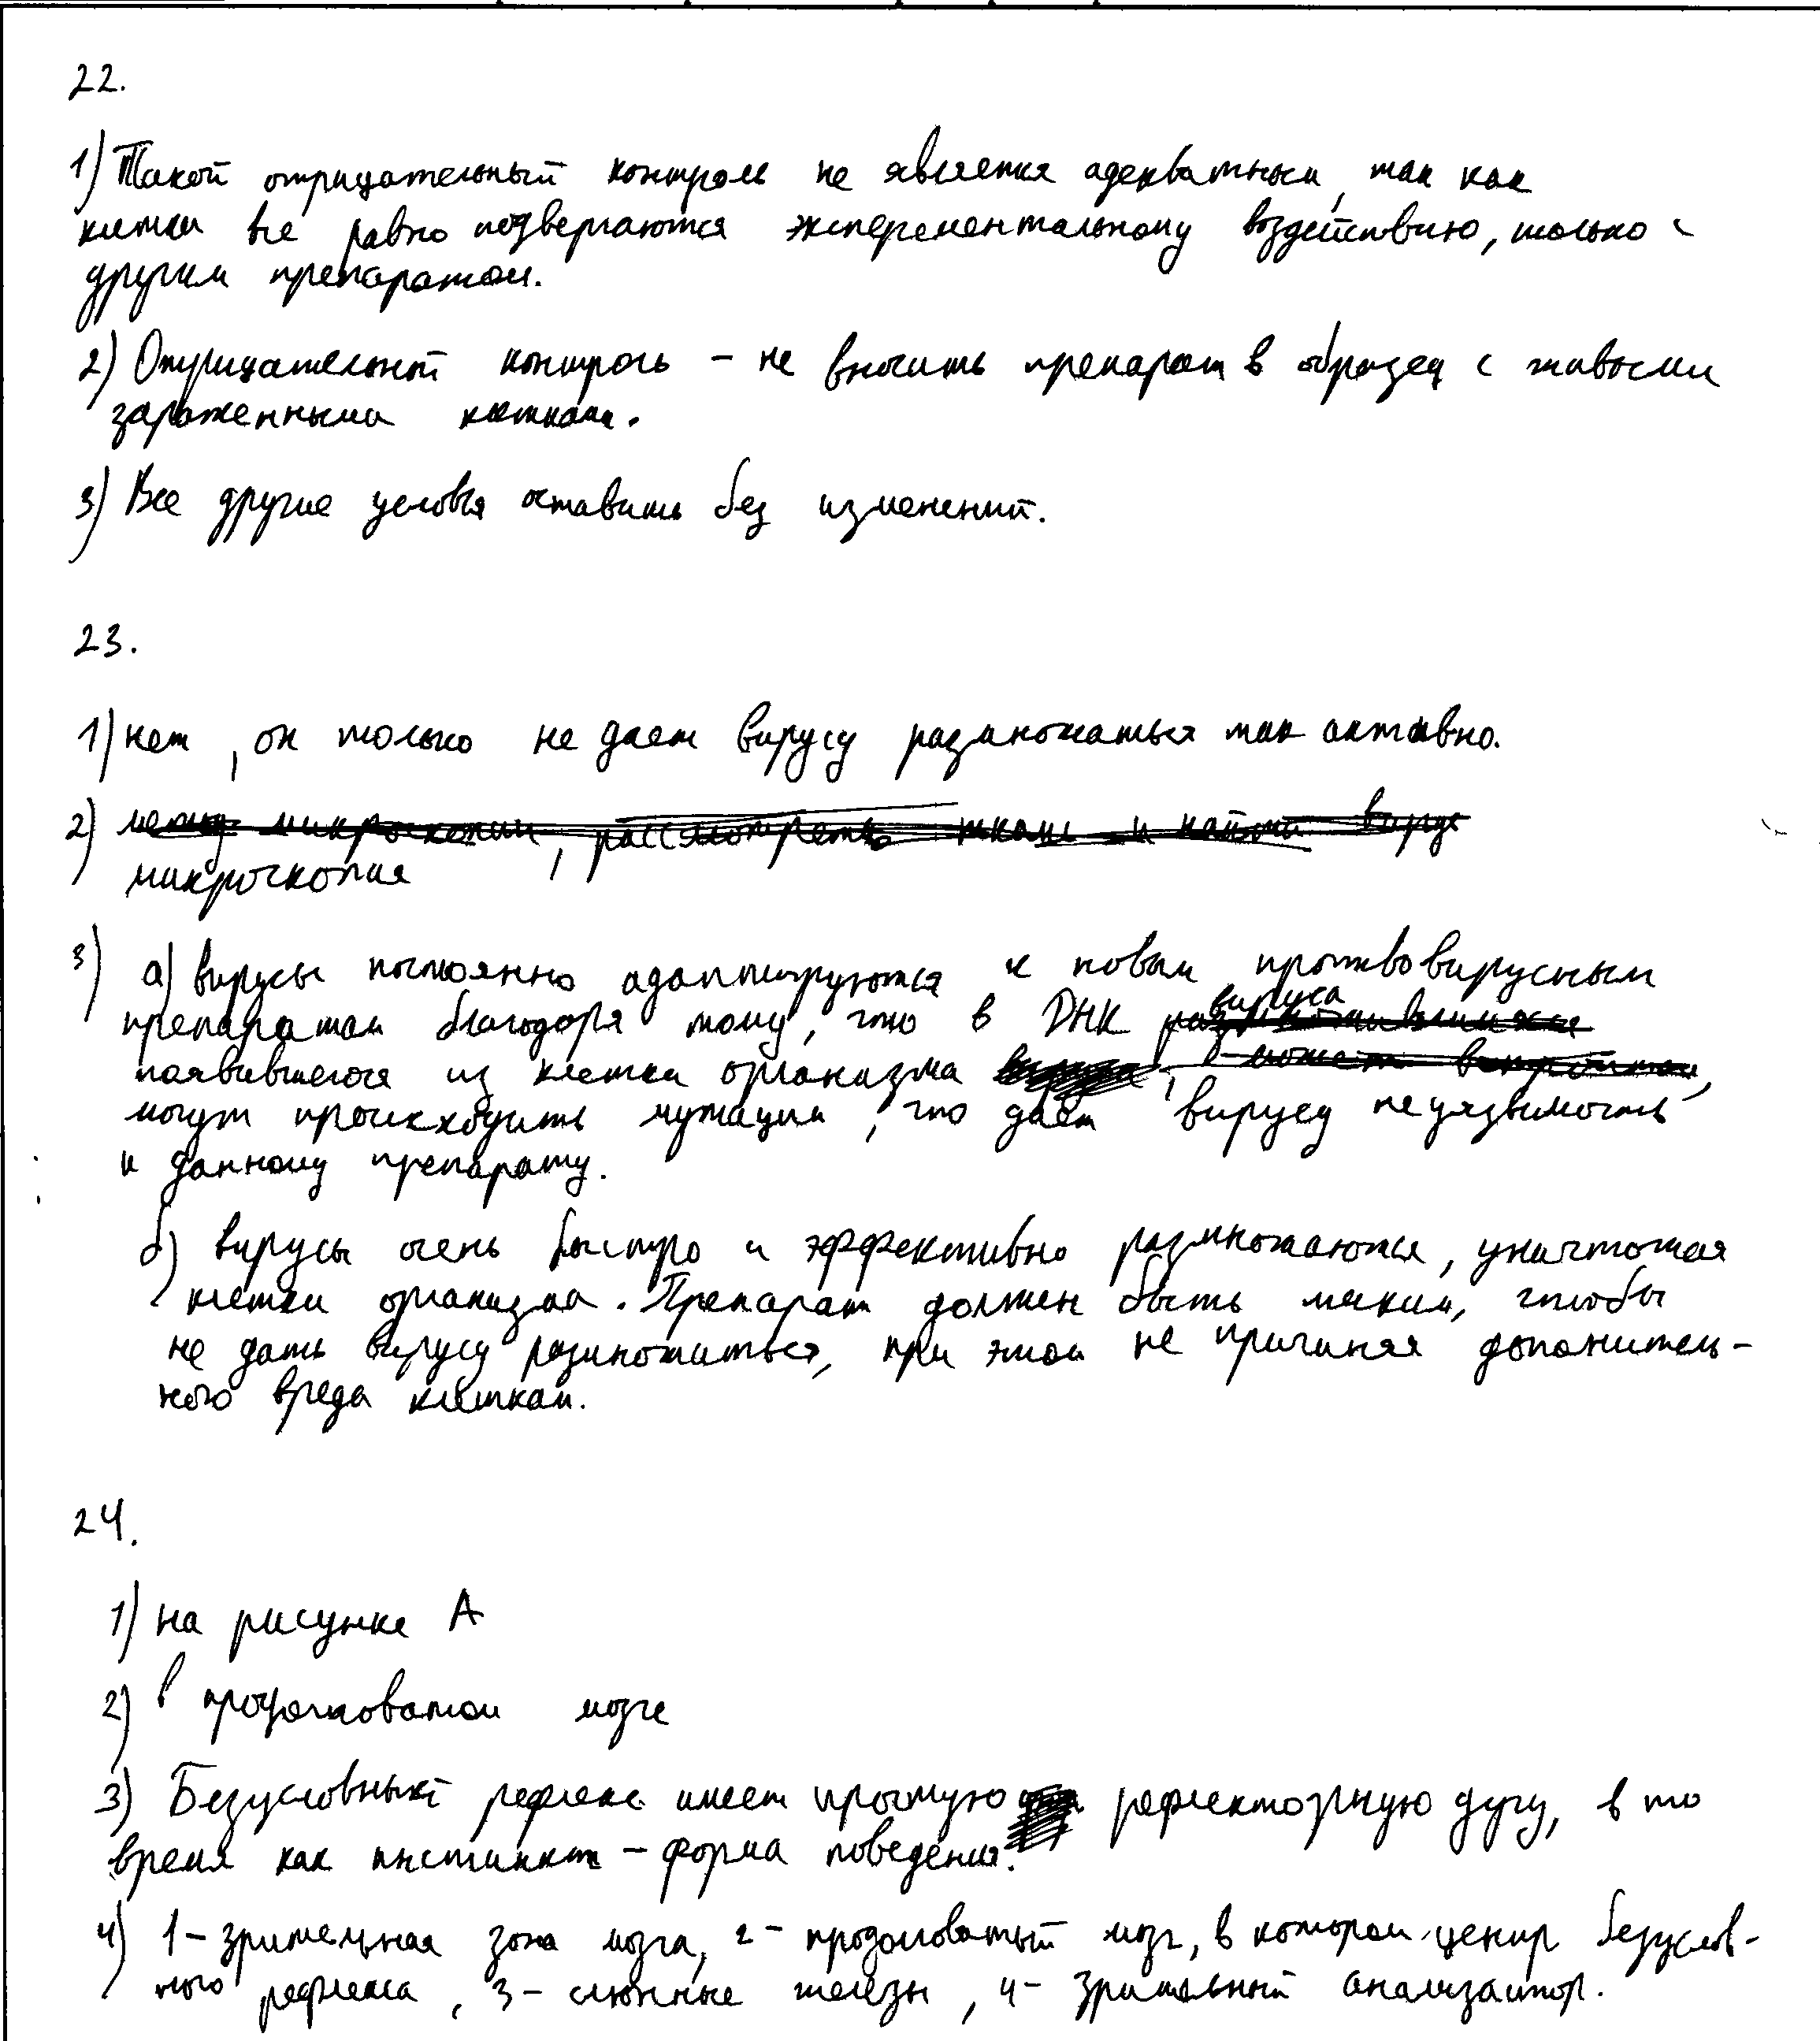 22.
1) Такой отрицательный контроль не является адекватным, так как
клетки все равно подвергаются эксперементальному воздействию, только с
другим препаратом.
2) Отрицательной контроль – не вносить препарат в образец с живыми
зараженными клетками.
3) Все другие условия оставить без изменений.
23.
1) нет, он только не дает вирусу размножаться так активно.
2) метод микроскопии, рассмотреть ткань и найти вирус
микроскопия
3) а) вирусы постоянно адаптируются к новым противовирусным
вируса
препаратам благодоря тому, что в ДНК
появившегося из клетки организма
могут происходить мутации, что даёт вирусу неуязвимость
к данному препарату.
б) вирусы очень быстро и эффективно размножаются, уничтожая
клетки организма. Препарат должен быть таким, чтобы
не дать вирусу размножиться, при этом не причиняя дополнитель-
ного вреда клеткам.
24.
1) на рисунке А
2) в продолговатом мозге
3) Безусловный рефлекс имеет простую рефлекторную дугу, в то
время как инстинкт – форма поведения.
4) 1 – зрительная зона мозга, 2 – продолговатый мозг, в котором центр безуслов-
ного рефлекса, 3 – слюнные железы, 4 – зрительный анализатор.